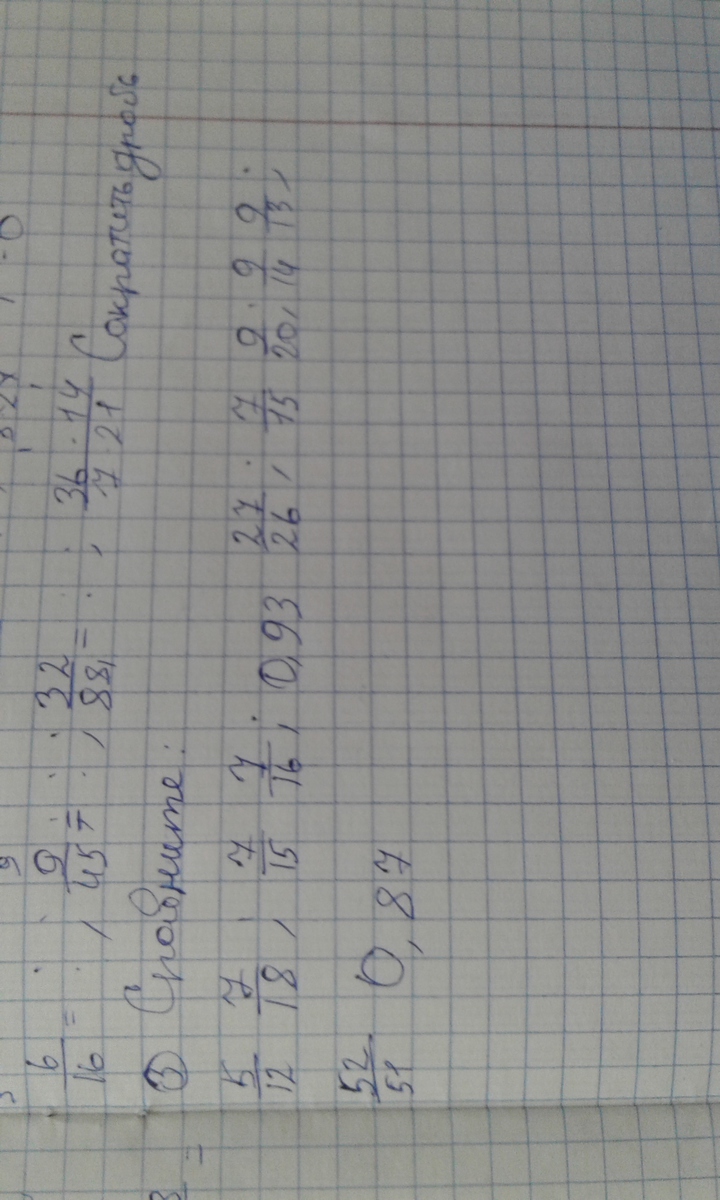 6/16 = , 9/45 = , 32/88 = , 36 · 14 / 7 · 21 Сократить дробь
③ Сравните:
5/12 7/18 , 7/15 7/16 , 0,93 27/26 , 7/15 9/20 , 9/14 9/13 ,
52/51 0,87